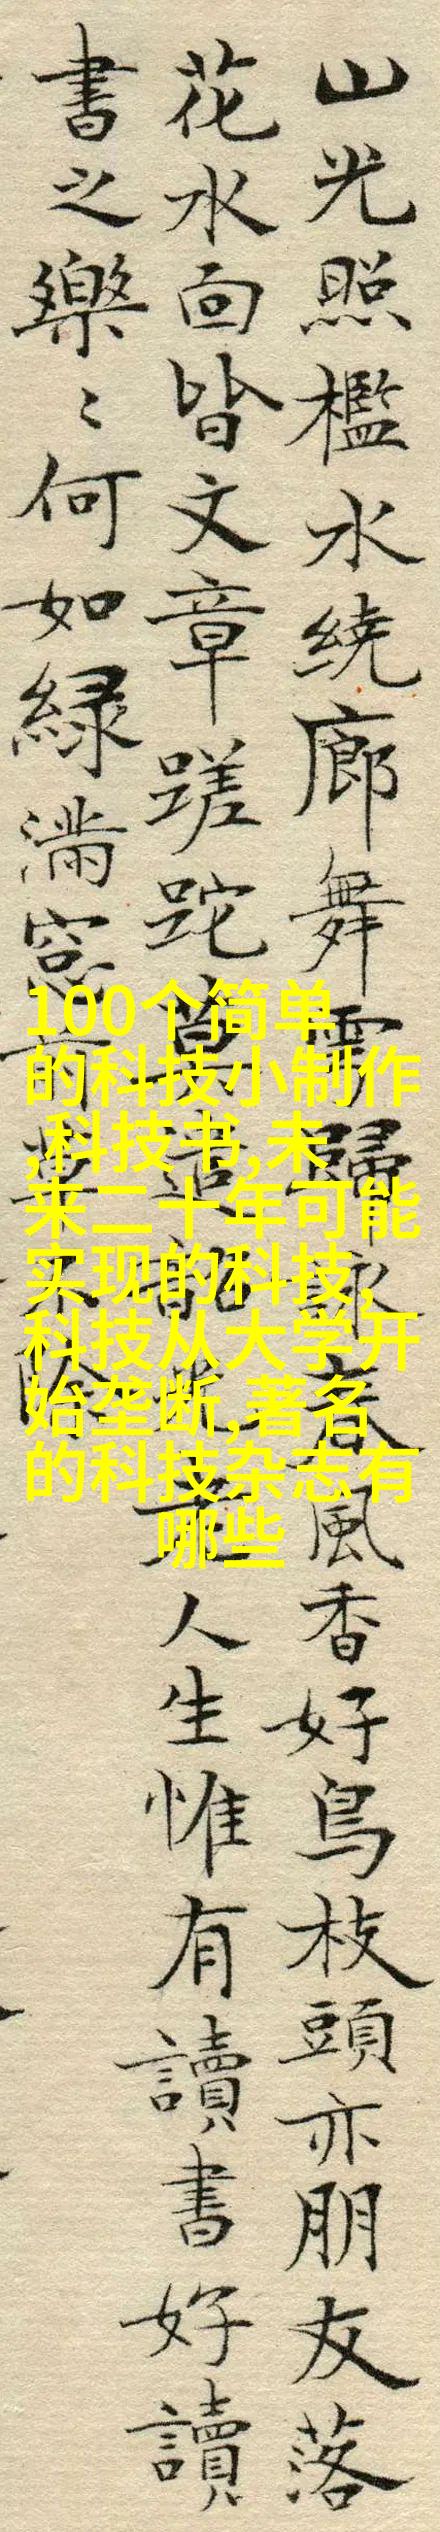 山光照檻水绕廊舞雩歸詠春風香好鳥枝頭亦朋友落
花水面皆文章蹉跎莫遣韶光老人生惟有讀書好讀
書之樂〻何如綠滿窓前草不除
100个简单
的科技小制作
,科技书,未
来二十年可能
实现的科技,
科技从大学开
始垄断,著名
的科技杂志有
哪些